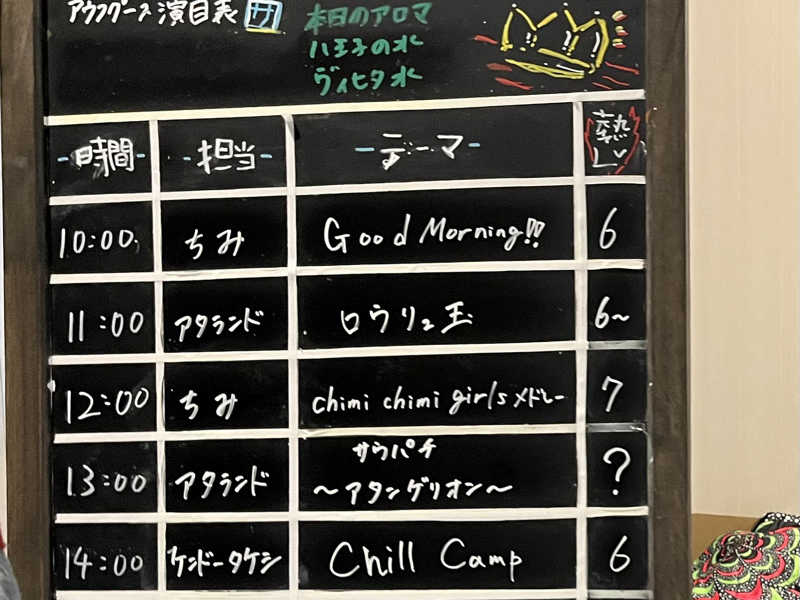 アウフグース演目表 サ
本日のアロマ
八王子の水
ヴィヒタ水
時間 担当 テーマ 熱レベ
10:00 ちみ Good Morning!! 6
11:00 アタランド ロウリュ玉 6~
12:00 ちみ chimi chimi girlsメドレー 7
13:00 アタランド サウパチ ?
～アタンゲリオン～
14:00 ケンドータケシ Chill Camp 6